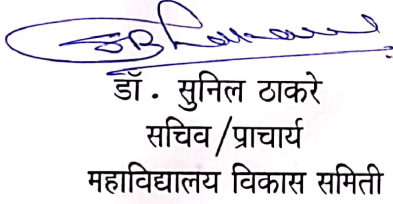 डॉ. सुनिल ठाकरे
सचिव/प्राचार्य
महाविद्यालय विकास समिती